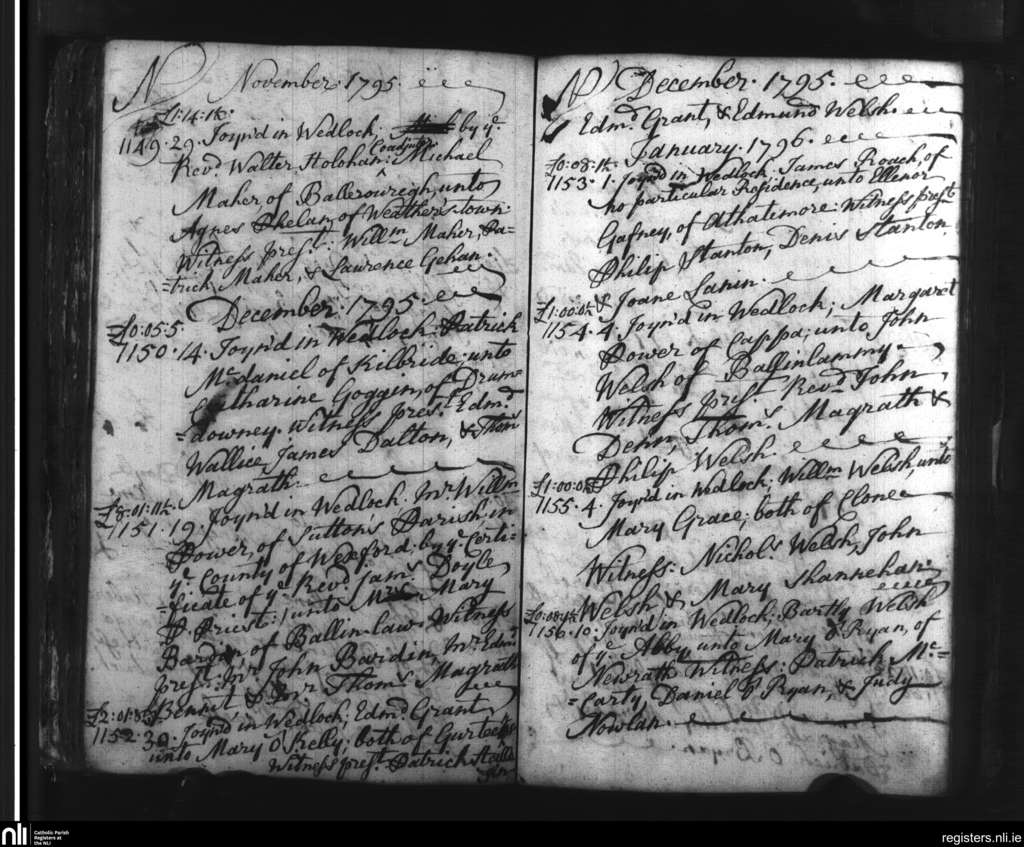 November 1795.
£1:14:1½:
1149. 29. Joyn'd in Wedlock; by yᵉ.
Coadjutor
Revᵈ. Walter Holohan: Michael
Maher of Ballerowregh, unto
Agnes Phelan, of Weather's town:
Witness presᵗ: Willᵐ Maher, Pa-
=trick Maher, & Lawrence Gehan.
December. 1795.
£0:05:5.
1150. 14. Joyn'd in Wedlock. Patrick
Mᶜdaniel of Kilbride; unto
Catharine Goggin, of Drum
=downey. Witness presᵗ. Edmᵈ
Wallice, James Dalton, & Thoms
Magrath.
1151. 19. Joyn'd in Wedlock. Mr. Willᵐ
Power, of Suttons Parish in
yᵉ. County of Wexford: by yᵉ. Certi=
=ficate of yᵉ Revᵈ. Jamˢ Doyle
P. Priest:/ unto Mary
Bardon, of Ballin-law. Witness
presᵗ. Mr. John Bardin, Mr. Edmᵈ.
Bennit, & Mr. Thomˢ Magrath
1152. 30. Joyn'd in Wedlock; Edmᵈ. Grant
unto Mary O'Kelly; both of
Witness presᵗ. Patrick
December. 1795.
Edmᵈ Grant, & Edmund Welsh.
January. 1796.
£0:08:1½:
1153. 1. Joyn'd in Wedlock, James Roach, of
no particular Residence, unto Ellenor
Gafney, of Athatimore: Witness presᵗ
Philip Stanton, Denis Stanton,
& Joane Lanin.
1154. 4. Joyn'd in Wedlock; Margaret
Power of Cappa; unto John
Welsh of Ballinlammy.
Witness presᵗ. Revᵈ John
Denn, Thomˢ. Magrath &
Philip Welsh.
1155. 4. Joyn'd in Wedlock; Willᵐ Welsh, unto
Mary Grace; both of Clone
Witness: Nicholˢ Welsh, John
Welsh & Mary Shannehan.
1156. 10. Joyn'd in Wedlock; Bartly Welsh
of yᵉ Abby, unto Mary O'Ryan, of
Newrath. Witness: Patrick Mᶜ=
=Carty, Daniel O'Ryan, & Judy
Nowlan.
nli
Catholic Parish
Registers at
the NLI
registers.nli.ie